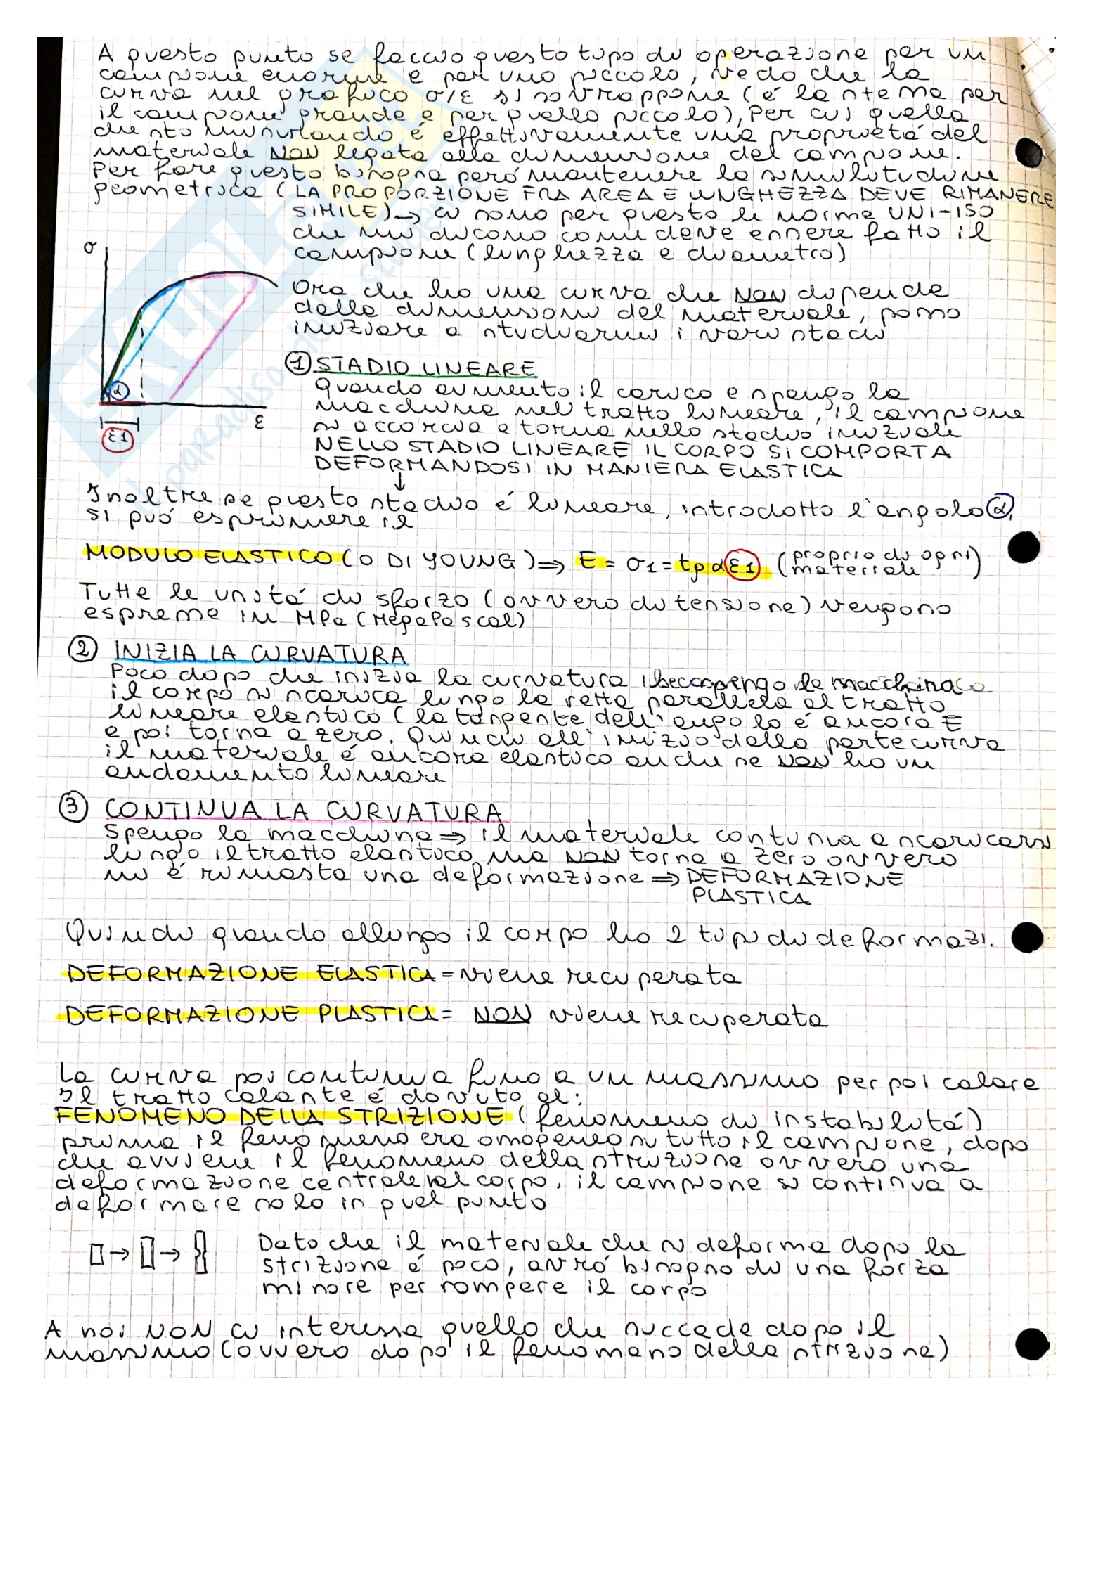 A questo punto se faccio questo tipo di operazione per un
campione enorme e per uno piccolo, vedo che la
curva nel grafico σ/ε si sovrappone (é la stessa per
il campione grande e per quello piccolo), Per cui quella
che sto misurando é effettivamente una proprietá del
materiale NON legata alla dimensione del campione.
Per fare questo bisogna peró mantenere la similitudine
geometrica (LA PROPORZIONE FRA AREA E LUNGHEZZA DEVE RIMANERE
SIMILE) → ci sono per questo le norme UNI-ISO
che mi dicono come deve essere fatto il
campione (lunghezza e diametro)
σ
Ora che ho una curva che NON dipende
dalle dimensioni del materiale, posso
iniziare a studiarmi i vari stadi
α
ε
ε1
① STADIO LINEARE
Quando aumento il carico e spengo la
macchina nel tratto lineare, il campione
si accorcia e torna nello stadio iniziale
NELLO STADIO LINEARE IL CORPO SI COMPORTA
DEFORMANDOSI IN MANIERA ELASTICA
↓
Inoltre se questo stadio é lineare, introdotto l'angolo α,
si puó esprimere il
MODULO ELASTICO (O DI YOUNG) ⇒ E = σ1 = tg α ε1 (proprio di ogni materiale)
Tutte le unitá di sforzo (ovvero di tensione) vengono
espresse in MPa (MegaPascal)
② INIZIA LA CURVATURA
Poco dopo che inizia la curvatura se spengo la macchina
il corpo si scarica lungo la retta parallela al tratto
lineare elastico (la tangente dell'angolo é ancora E
e poi torna a zero. Quindi all'inizio della parte curva
il materiale é ancora elastico anche se NON ho un
andamento lineare
③ CONTINUA LA CURVATURA
Spengo la macchina ⇒ il materiale continua a scaricarsi
lungo il tratto elastico ma NON torna a zero ovvero
mi é rimasta una deformazione ⇒ DEFORMAZIONE
PLASTICA
Quindi quando allungo il corpo ho 2 tipi di deformazi.
DEFORMAZIONE ELASTICA = viene recuperata
DEFORMAZIONE PLASTICA = NON viene recuperata
La curva poi continua fino a un massimo per poi calare
Il tratto calante é dovuto al:
FENOMENO DELLA STRIZIONE (fenomeno di instabilitá)
prima il fenomeno era omogeneo su tutto il campione, dopo
che avviene il fenomeno della strizione ovvero una
deformazione centrale al corpo, il campione si continua a
deformare solo in quel punto
→ →
Dato che il materiale che si deforma dopo la
strizione é poco, avró bisogno di una forza
minore per rompere il corpo
A noi NON ci interessa quello che succede dopo il
massimo (ovvero dopo il fenomeno della strizione)